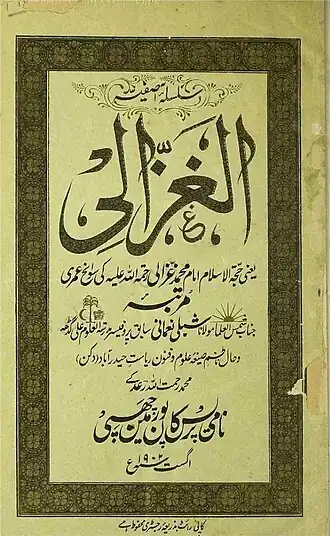 سلسلۂ آصفیہ
الغزّالی
یعنی حجۃ الاسلام امام محمد غزالی رحمۃ اللہ علیہ کی سوانح عمری
مرتبہ
جناب شمس العلما مولانا شبلی نعمانی سابق پروفیسر مدرسۃ العلوم علی گڑھ
و حال ناظم صیغہ علوم و فنون ریاست حیدرآباد (دکن)
محمد رحمت اللہ رعد کے
نامی پریس کانپور میں چھپی
اگست ۱۹۰۲ء
کاپی رائٹ بذریعہ رجسٹری محفوظ ہے